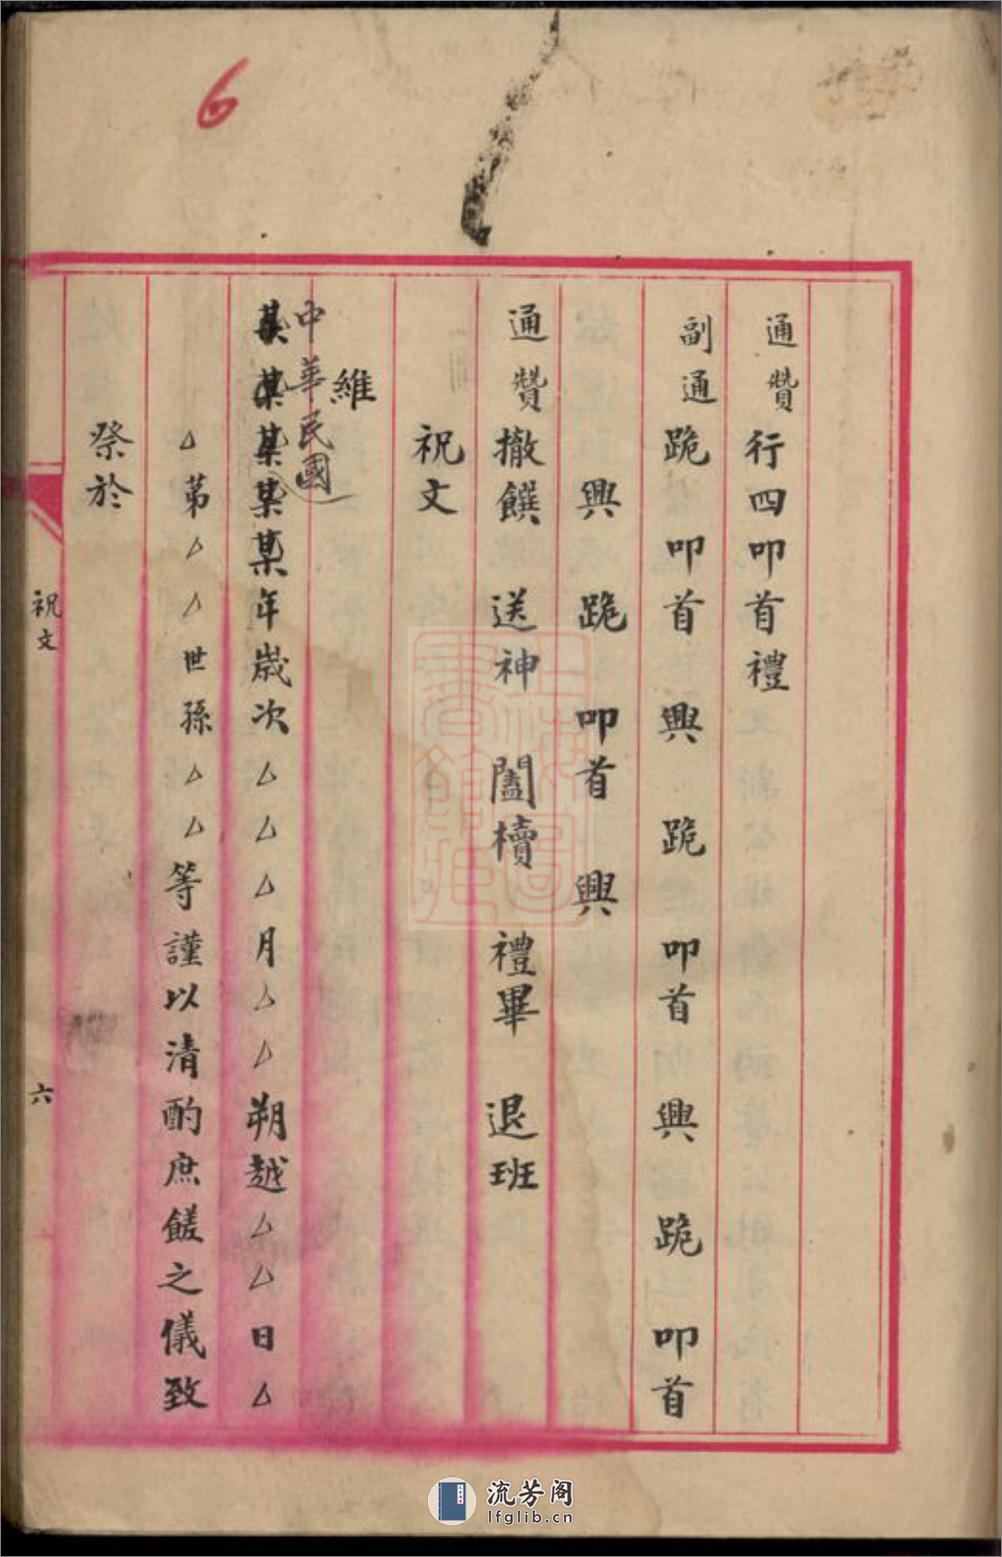 6
通贊行四叩首禮
副通跪叩首興跪叩首興跪叩首
興跪叩首興
通贊撤饌送神闔櫝禮畢退班
祝文
維
中華民國
某某某某某年歲次△△△月△△朔越△△日△
△第△△世孫△△等謹以清酌庶饈之儀致
祭於
祝文
六
上海圖書館藏
流芳阁
lfglib.cn